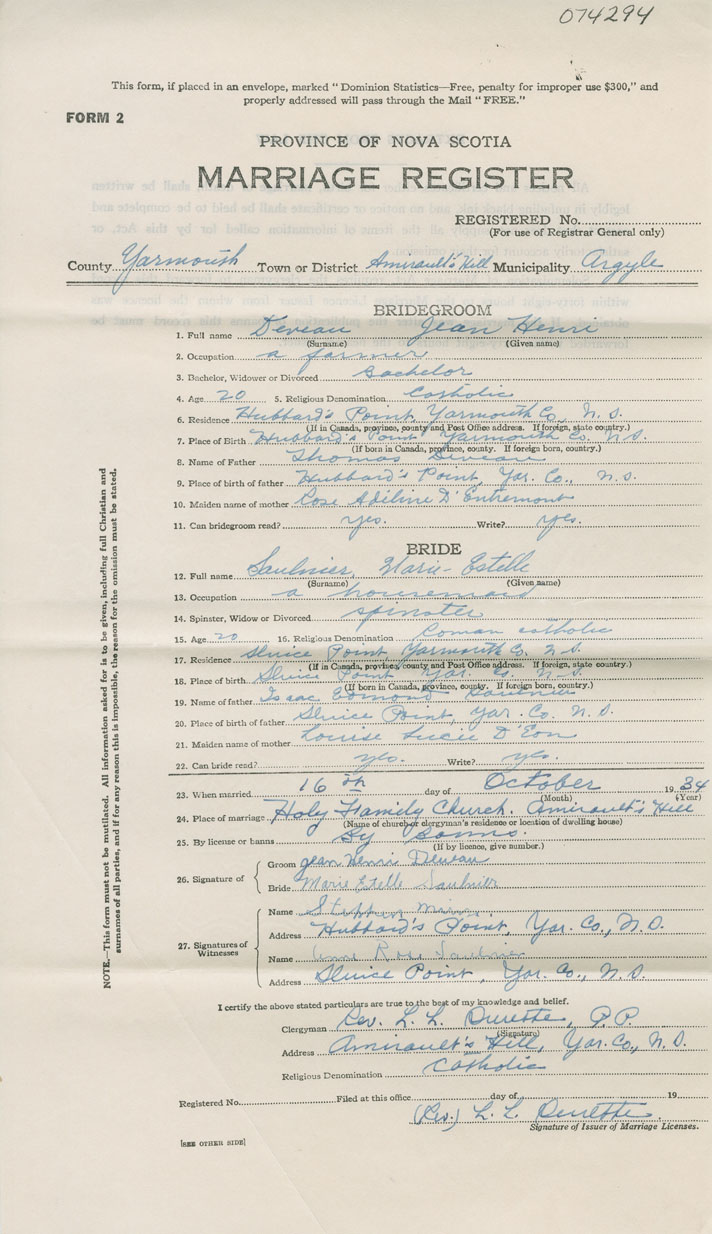 074294
This form, if placed in an envelope, marked "Dominion Statistics—Free, penalty for improper use $300," and
properly addressed will pass through the Mail "FREE."
FORM 2
PROVINCE OF NOVA SCOTIA
MARRIAGE REGISTER
REGISTERED No.
(For use of Registrar General only)
County Yarmouth Town or District Amirault's Hill Municipality Argyle
BRIDEGROOM
1. Full name Deveau Jean Henri
(Surname) (Given name)
2. Occupation a farmer
3. Bachelor, Widower or Divorced Bachelor
4. Age 20 5. Religious Denomination Catholic
6. Residence Hubbard's Point, Yarmouth Co., N. S.
(If in Canada, province, county and Post Office address. If foreign, state country.)
7. Place of Birth Hubbard's Point Yarmouth Co. N.S.
(If born in Canada, province, county. If foreign born, country.)
8. Name of Father Thomas Deveau
9. Place of birth of father Hubbard's Point, Yar. Co., N.S.
10. Maiden name of mother Rose Adéline D'Entremont
11. Can bridegroom read? yes. Write? yes.
BRIDE
12. Full name Saulnier, Marie-Estelle
(Surname) (Given name)
13. Occupation a housemaid
14. Spinster, Widow or Divorced spinster
15. Age 20 16. Religious Denomination Roman catholic
17. Residence Sluice Point Yarmouth Co. N.S.
(If in Canada, province, county and Post Office address. If foreign, state country.)
18. Place of birth Sluice Point Yar. Co. N.S.
(If born in Canada, province, county. If foreign born, country.)
19. Name of father Isaac Edmond Saulnier
20. Place of birth of father Sluice Point Yar. Co. N.S.
21. Maiden name of mother Louise Lucie D'Eon
22. Can bride read? yes. Write? yes.
23. When married 16th day of October 1934
(Month) (Year)
24. Place of marriage Holy Family Church. Amirault's Hill
(Name of church or clergyman's residence or location of dwelling house)
25. By license or banns By Banns.
(If by licence, give number.)
26. Signature of
Groom Jean Henri Deveau
Bride Marie Estelle Saulnier
27. Signatures of Witnesses
Name
Address Hubbard's Point, Yar. Co., N.S.
Name Anne Rose Saulnier
Address Sluice Point, Yar. Co., N.S.
I certify the above stated particulars are true to the best of my knowledge and belief.
Clergyman Rev. L. L. Durette, P.P.
(Signature)
Address Amirault's Hill, Yar. Co., N.S.
Religious Denomination Catholic
Registered No. Filed at this office day of 19
(Rev.) L. L. Durette
Signature of Issuer of Marriage Licenses.
[SEE OTHER SIDE]
NOTE.—This form must not be mutilated. All information asked for is to be given, including full Christian and
surnames of all parties, and if for any reason this is impossible, the reason for the omission must be stated.